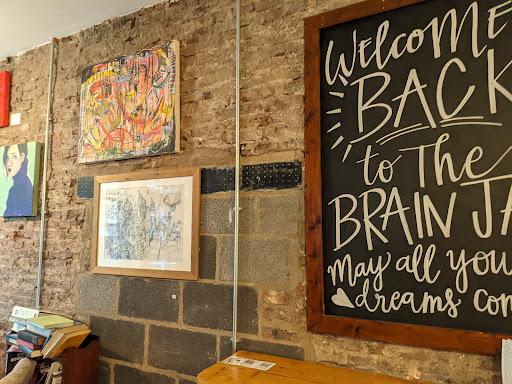 WelcoME
BACK
to The
BRAIN JA
May all you
dreams com